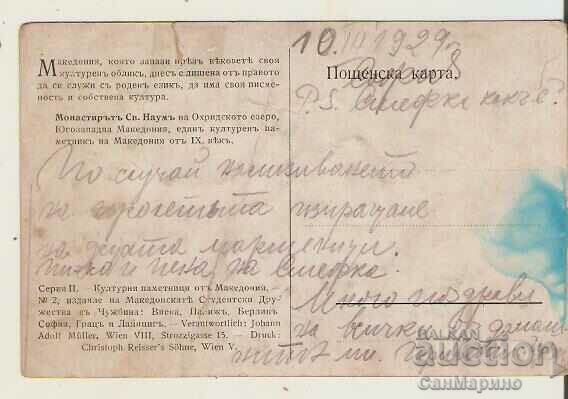 Македония, която запази прѣзъ вѣковетѣ своя
културенъ обликъ, днесъ е лишена отъ правото
да си служи съ роденъ езикъ, да има своя писме-
ность и собствена култура.
Монастирътъ Св. Наумъ на Охридското езеро,
Югозападна Македония, единъ културенъ па-
метникъ на Македония отъ IX. вѣкъ.
10 III 1929 г.
Пощенска карта.
P.S.
По случай
на пролетьта изпращаме
на децата мартеници.
Пижо и Пена, за
Много поздрави
за всички
Серия II. – Културни паметници отъ Македония. –
№ 2, издание на Македонскитѣ Студентски Дру-
жества въ Чужбина: Виена, Парижъ, Берлинъ
София, Грацъ и Лайпцигъ. – Verantwortlich: Johann
Adolf Müller, Wien VIII, Strozzigasse 15. – Druck:
Christoph Reisser's Söhne, Wien V.
BALKAN
auction
СанМарино